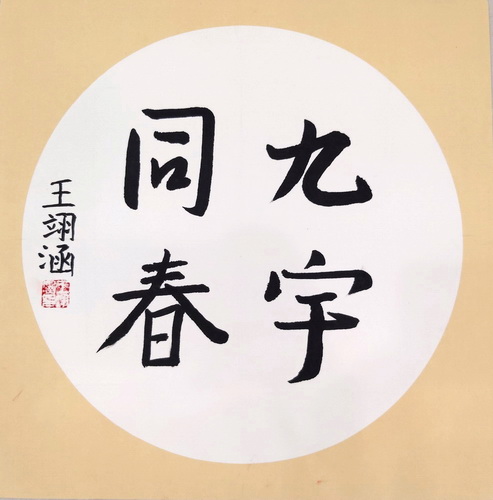 九宇
同春
王翊涵